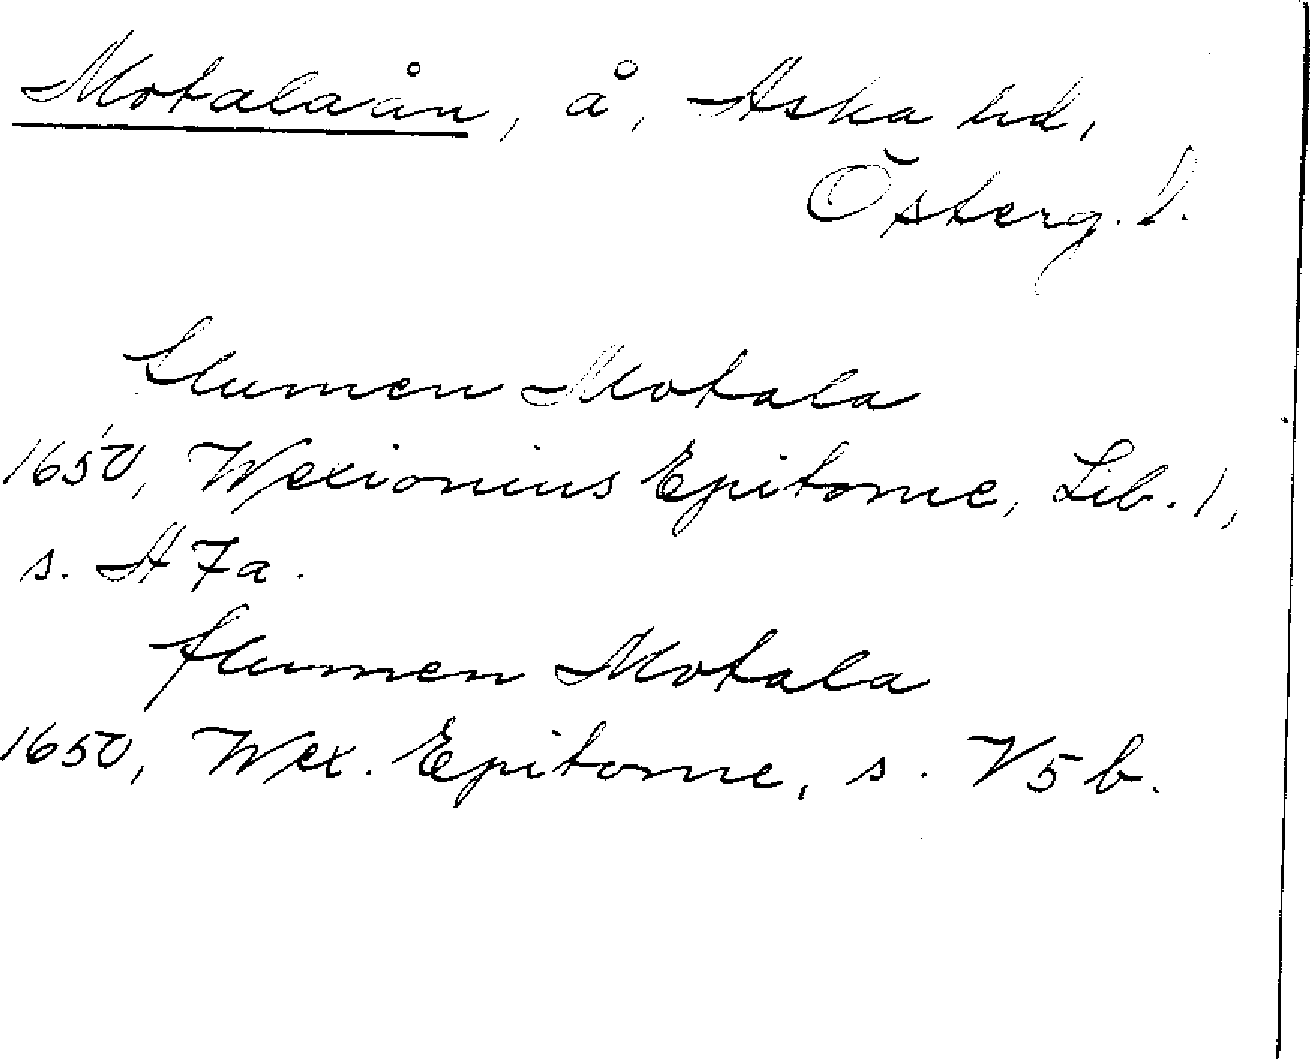 Motalaån, å, Aska hd,
Österg. l.
Flumen Motala
1650, Wexionius Epitome, Lib. 1,
s. H 7a.
flumen Motala
1650, Wex. Epitome, s. V5 b.